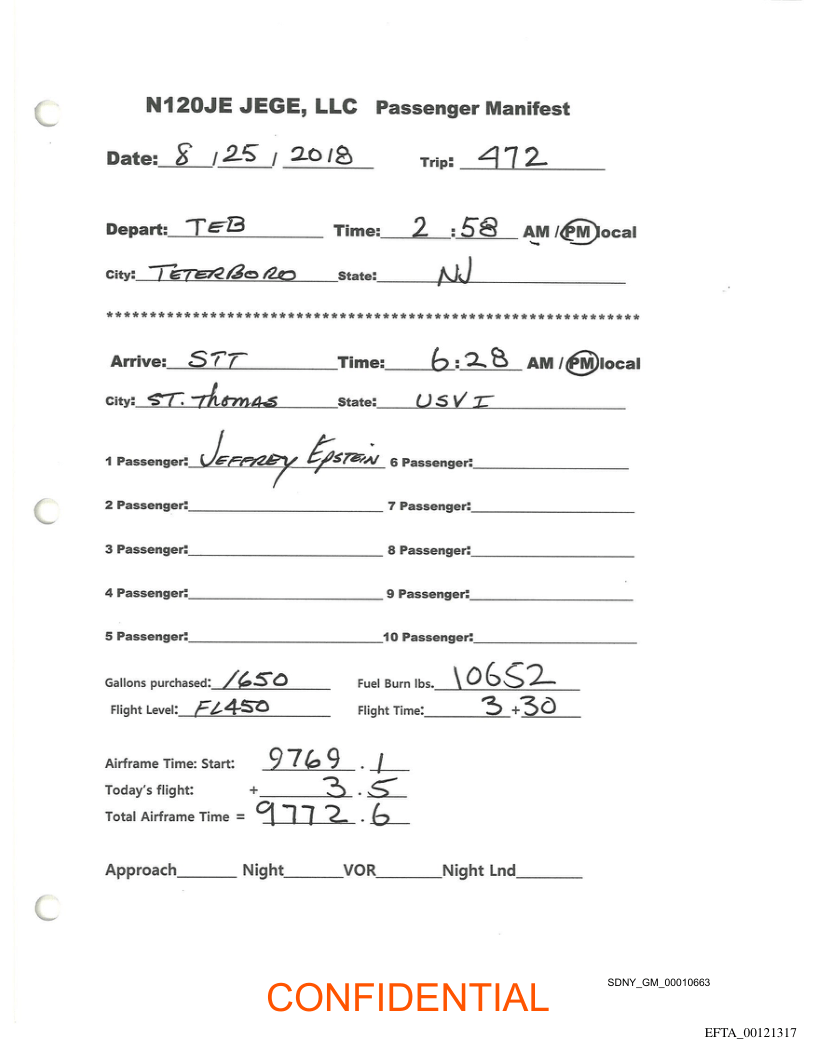 N120JE JEGE, LLC Passenger Manifest
Date: 8 / 25 / 2018 Trip: 472
Depart: TEB Time: 2 : 58 AM / PM local
City: TETERBORO State: NJ
****************************************************************
Arrive: STT Time: 6:28 AM / PM local
City: ST. Thomas State: USVI
1 Passenger: JEFFREY EPSTEIN 6 Passenger:
2 Passenger: 7 Passenger:
3 Passenger: 8 Passenger:
4 Passenger: 9 Passenger:
5 Passenger: 10 Passenger:
Gallons purchased: 1650 Fuel Burn lbs. 10652
Flight Level: FL450 Flight Time: 3 + 30
Airframe Time: Start: 9769 . 1
Today's flight: + 3 . 5
Total Airframe Time = 9772 . 6
Approach Night VOR Night Lnd
CONFIDENTIAL
SDNY_GM_00010663
EFTA_00121317